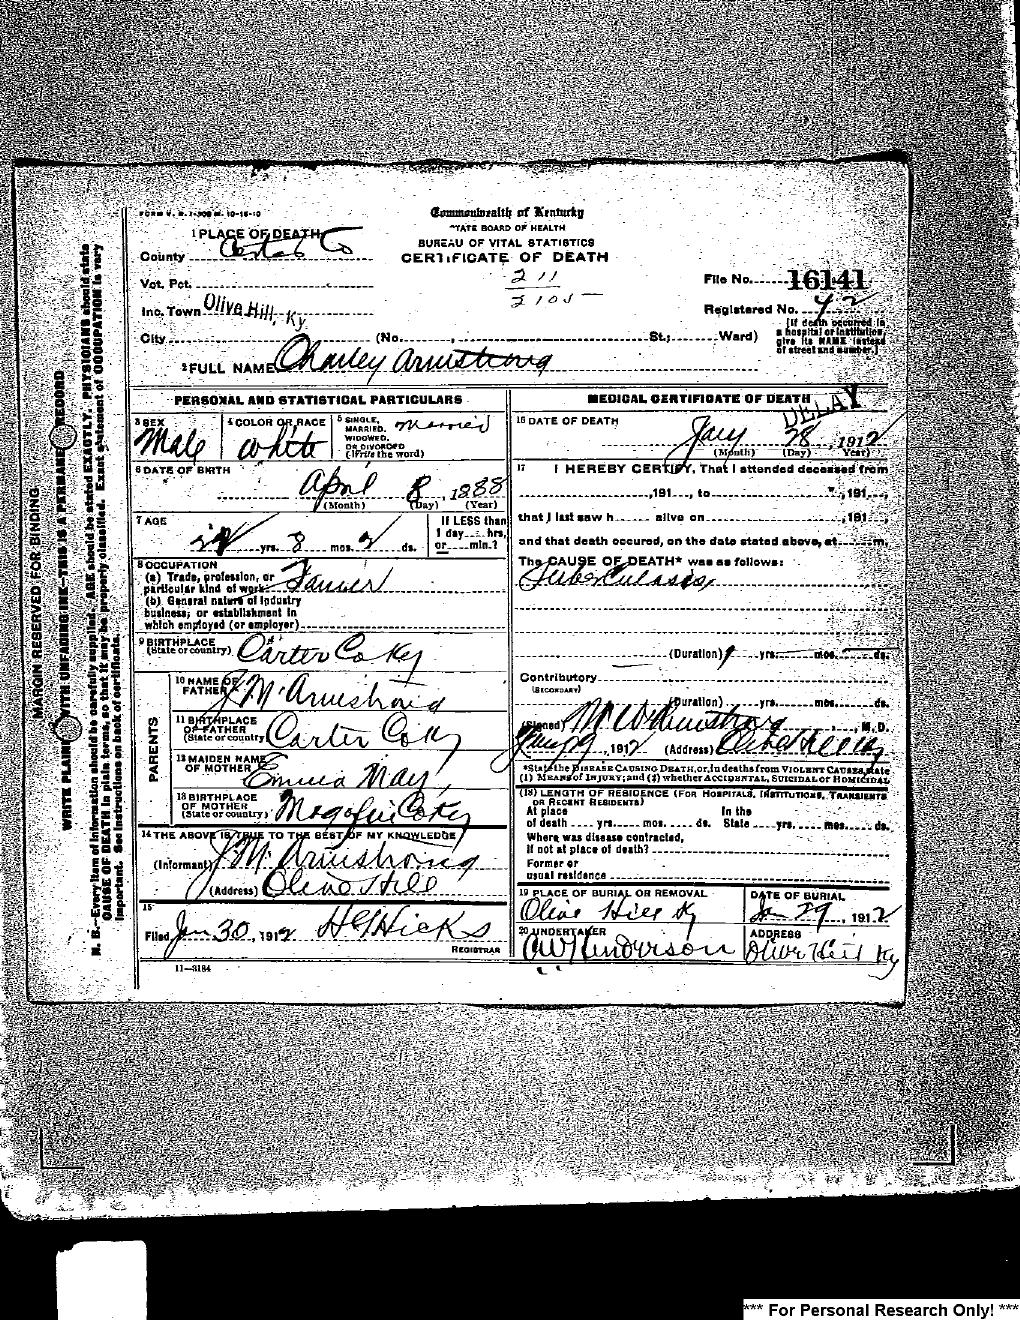 FORM V. S. 1-50M M. 10-15-10
Commonwealth of Kentucky
STATE BOARD OF HEALTH
BUREAU OF VITAL STATISTICS
CERTIFICATE OF DEATH
1 PLACE OF DEATH
County Carter Co
Vot. Pct.
Inc. Town Olive Hill, Ky
City (No. , St.; Ward)
211
2105
File No. 16141
Registered No. 42
[If death occurred in a hospital or institution, give its NAME instead of street and number.]
2 FULL NAME Charley Armstrong
PERSONAL AND STATISTICAL PARTICULARS
3 SEX Male
4 COLOR OR RACE White
5 SINGLE, MARRIED, WIDOWED, OR DIVORCED (Write the word) Married
6 DATE OF BIRTH
April 8, 1888
(Month) (Day) (Year)
7 AGE
24 yrs. 8 mos. 2 ds.
If LESS than 1 day hrs, or min.?
8 OCCUPATION
(a) Trade, profession, or particular kind of work Farmer
(b) General nature of industry
business, or establishment in
which employed (or employer)
9 BIRTHPLACE
(State or country) Carter Co Ky
PARENTS
10 NAME OF FATHER J M Armstrong
11 BIRTHPLACE OF FATHER (State or country) Carter Co Ky
12 MAIDEN NAME OF MOTHER Emma May
13 BIRTHPLACE OF MOTHER (State or country) Magofin Co Ky
14 THE ABOVE IS TRUE TO THE BEST OF MY KNOWLEDGE
(Informant) J M Armstrong
(Address) Olive Hill
15
Filed Jan 30, 1912 H G Hicks
REGISTRAR
11-3184
MEDICAL CERTIFICATE OF DEATH
DELAY
16 DATE OF DEATH
Jany 28, 1912
(Month) (Day) (Year)
17 I HEREBY CERTIFY, That I attended deceased from
, 191 , to , 191 ,
that I last saw h alive on , 191 ,
and that death occured, on the date stated above, at m.
The CAUSE OF DEATH* was as follows:
Tuberculosis
(Duration) 1 yrs. mos. ds.
Contributory
(SECONDARY)
(Duration) yrs. mos. ds.
(Signed) M W Armstrong, M. D.
Jany 29, 1912 (Address) Olive Hill Ky
*State the DISEASE CAUSING DEATH, or, in deaths from VIOLENT CAUSES, state
(1) MEANS of INJURY; and (2) whether ACCIDENTAL, SUICIDAL or HOMICIDAL
(18) LENGTH OF RESIDENCE (FOR HOSPITALS, INSTITUTIONS, TRANSIENTS
OR RECENT RESIDENTS)
At place In the
of death yrs. mos. ds. State yrs. mos. ds.
Where was disease contracted,
If not at place of death?
Former or
usual residence
19 PLACE OF BURIAL OR REMOVAL
Olive Hill Ky
DATE OF BURIAL
Jan 29, 1912
20 UNDERTAKER
ADDRESS
Henderson
Olive Hill Ky
MARGIN RESERVED FOR BINDING
WRITE PLAINLY WITH UNFADING INK—THIS IS A PERMANENT RECORD
N. B.—Every item of information should be carefully supplied. AGE should be stated EXACTLY. PHYSICIANS should state
CAUSE OF DEATH in plain terms, so that it may be properly classified. Exact statement of OCCUPATION is very
important. See instructions on back of certificate.
*** For Personal Research Only! ***